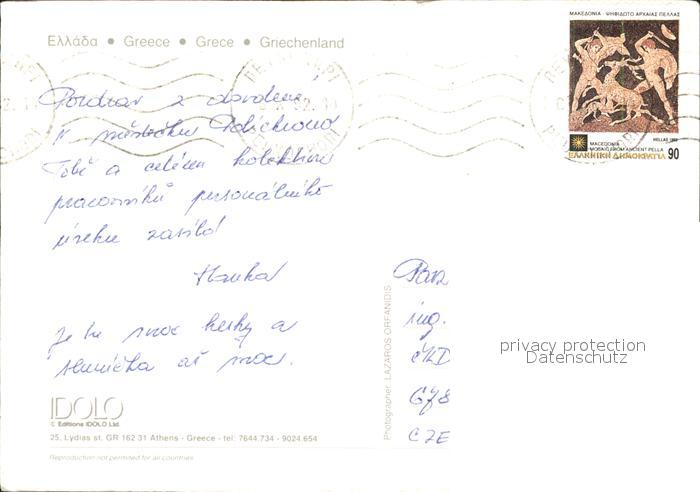 Ελλάδα • Greece • Grece • Griechenland
ΜΑΚΕΔΟΝΙΑ - ΨΗΦΙΔΩΤΟ ΑΡΧΑΙΑΣ ΠΕΛΛΑΣ
HELLAS 1992
MACEDONIA
MOSAIC FROM ANCIENT PELLA
ΕΛΛΗΝΙΚΗ ΔΗΜΟΚΡΑΤΙΑ 90
Pozdrav z dovolené
v městečku Polichrono
Tobě a celému kolektivu
pracovníků personálního
úseku zasílá
Hanka
Je tu moc hezky a
sluníčka až moc.
Pan
ing.
ČKD
678
CZE
Photographer: LAZAROS ORFANIDIS
privacy protection
Datenschutz
IDOLO
© Editions IDOLO Ltd.
25, Lydias st. GR 162 31 Athens - Greece - tel: 7644.734 - 9024.654
Reproduction not permited for all countries